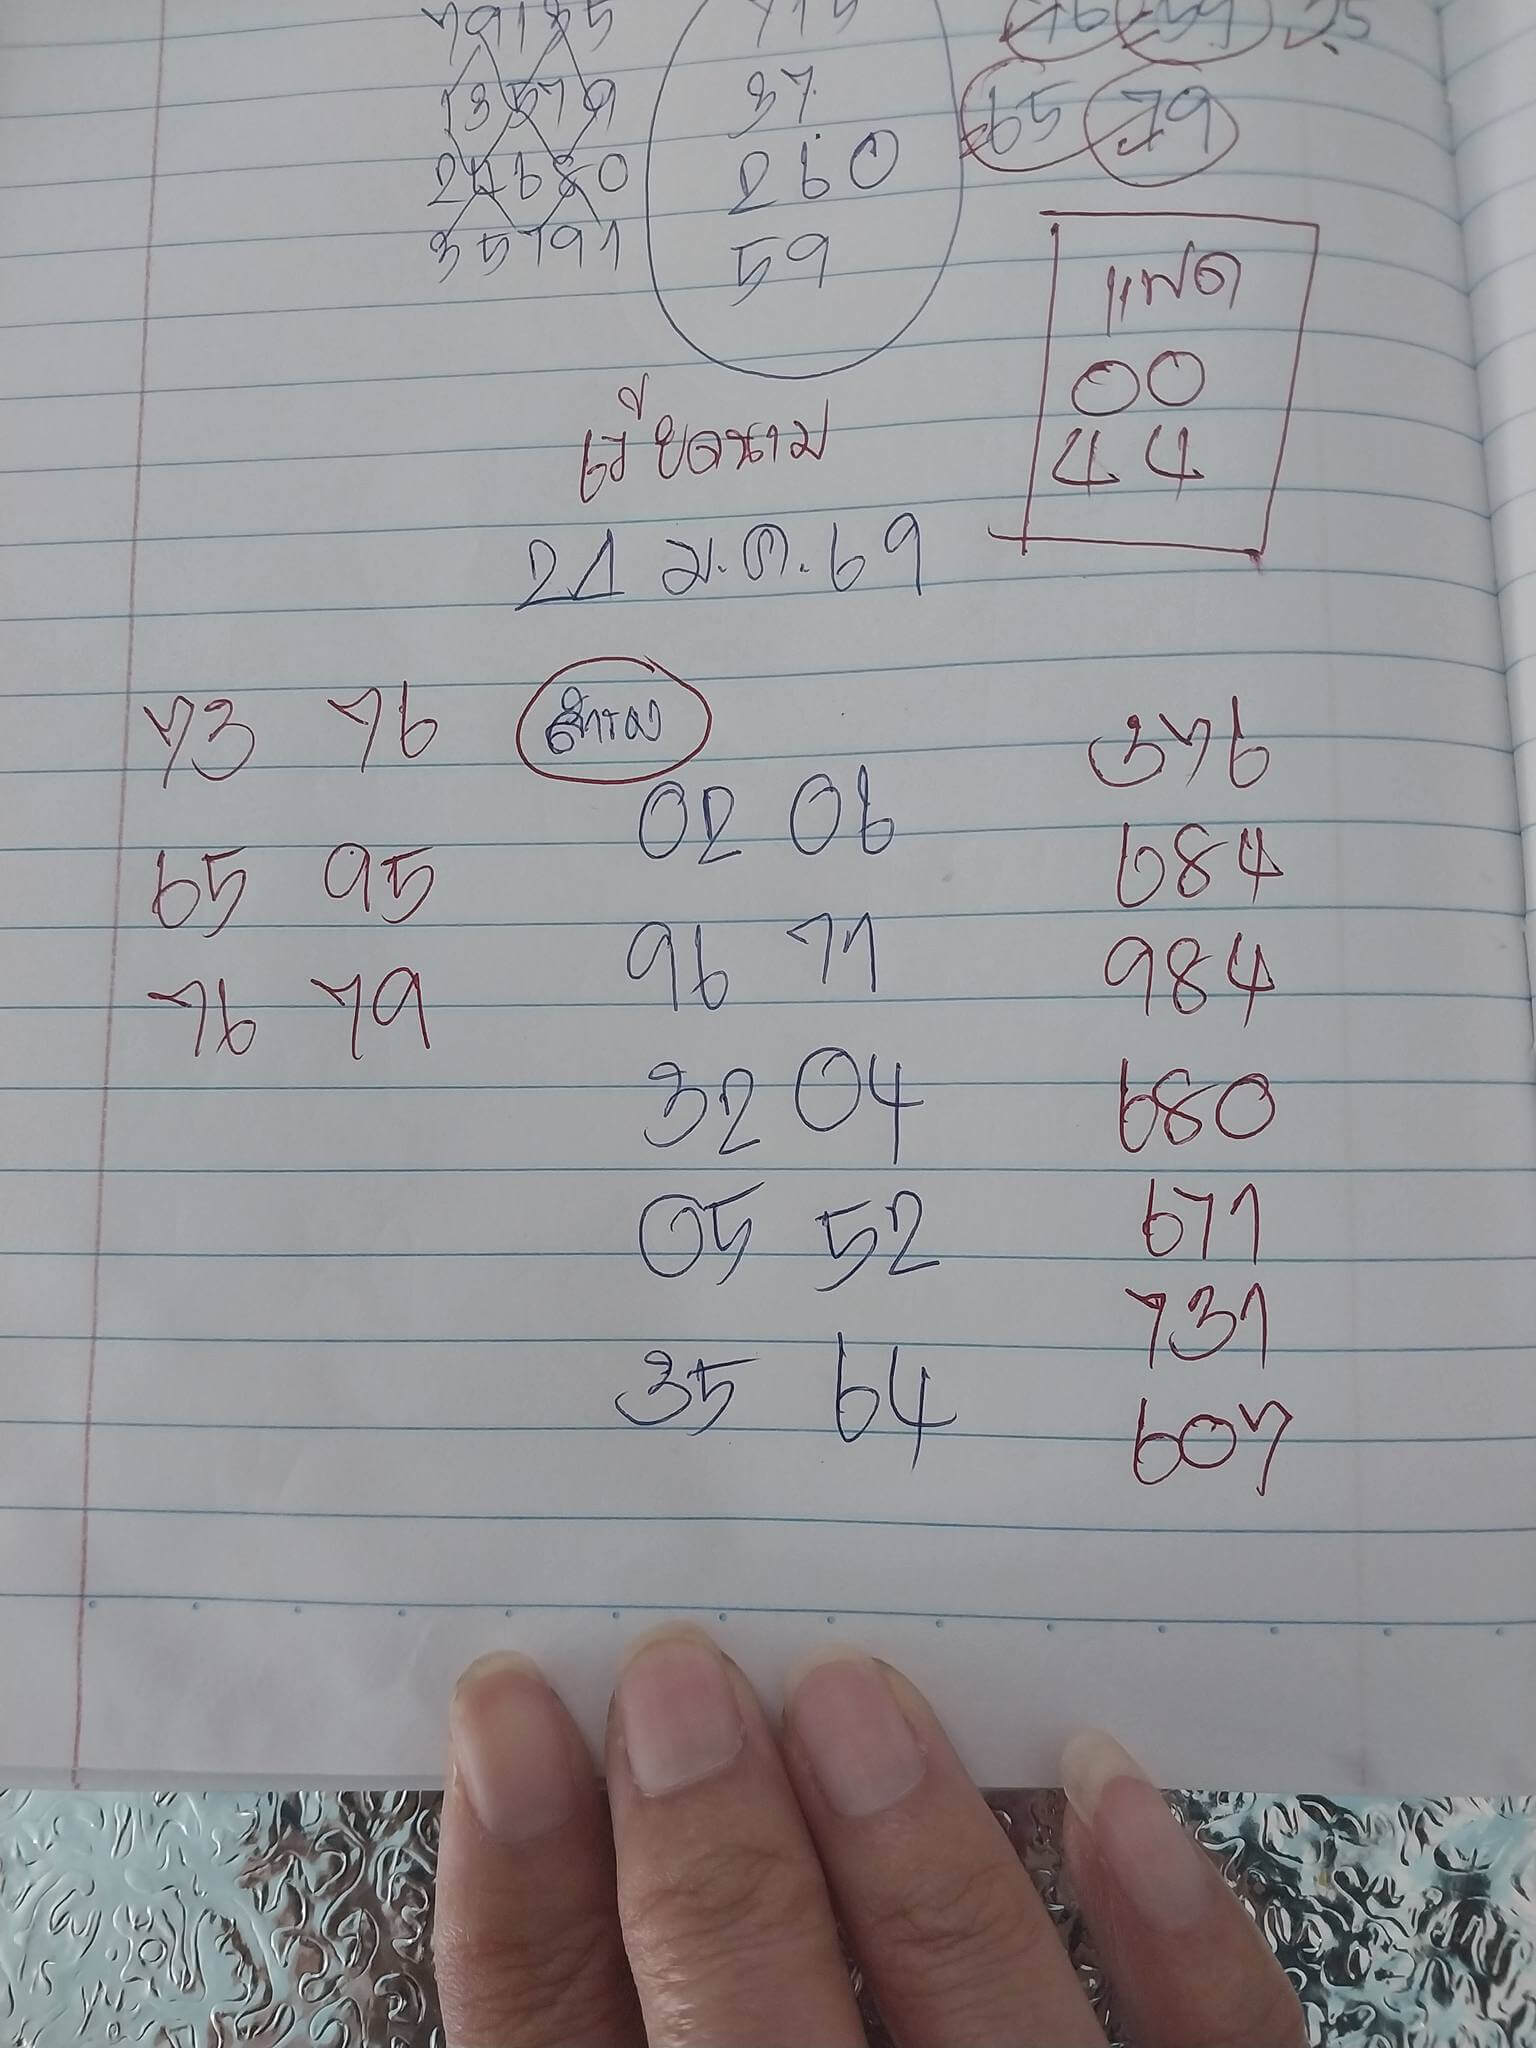 79135 715
13579 37 65 79
24680 260
35791 59
แฟด
00
44
เวียดนาม
21 ม.ค.69
73 76
02 06 376
65 95 684
96 71 984
76 79
32 04 680
05 52 671
731
35 64 607